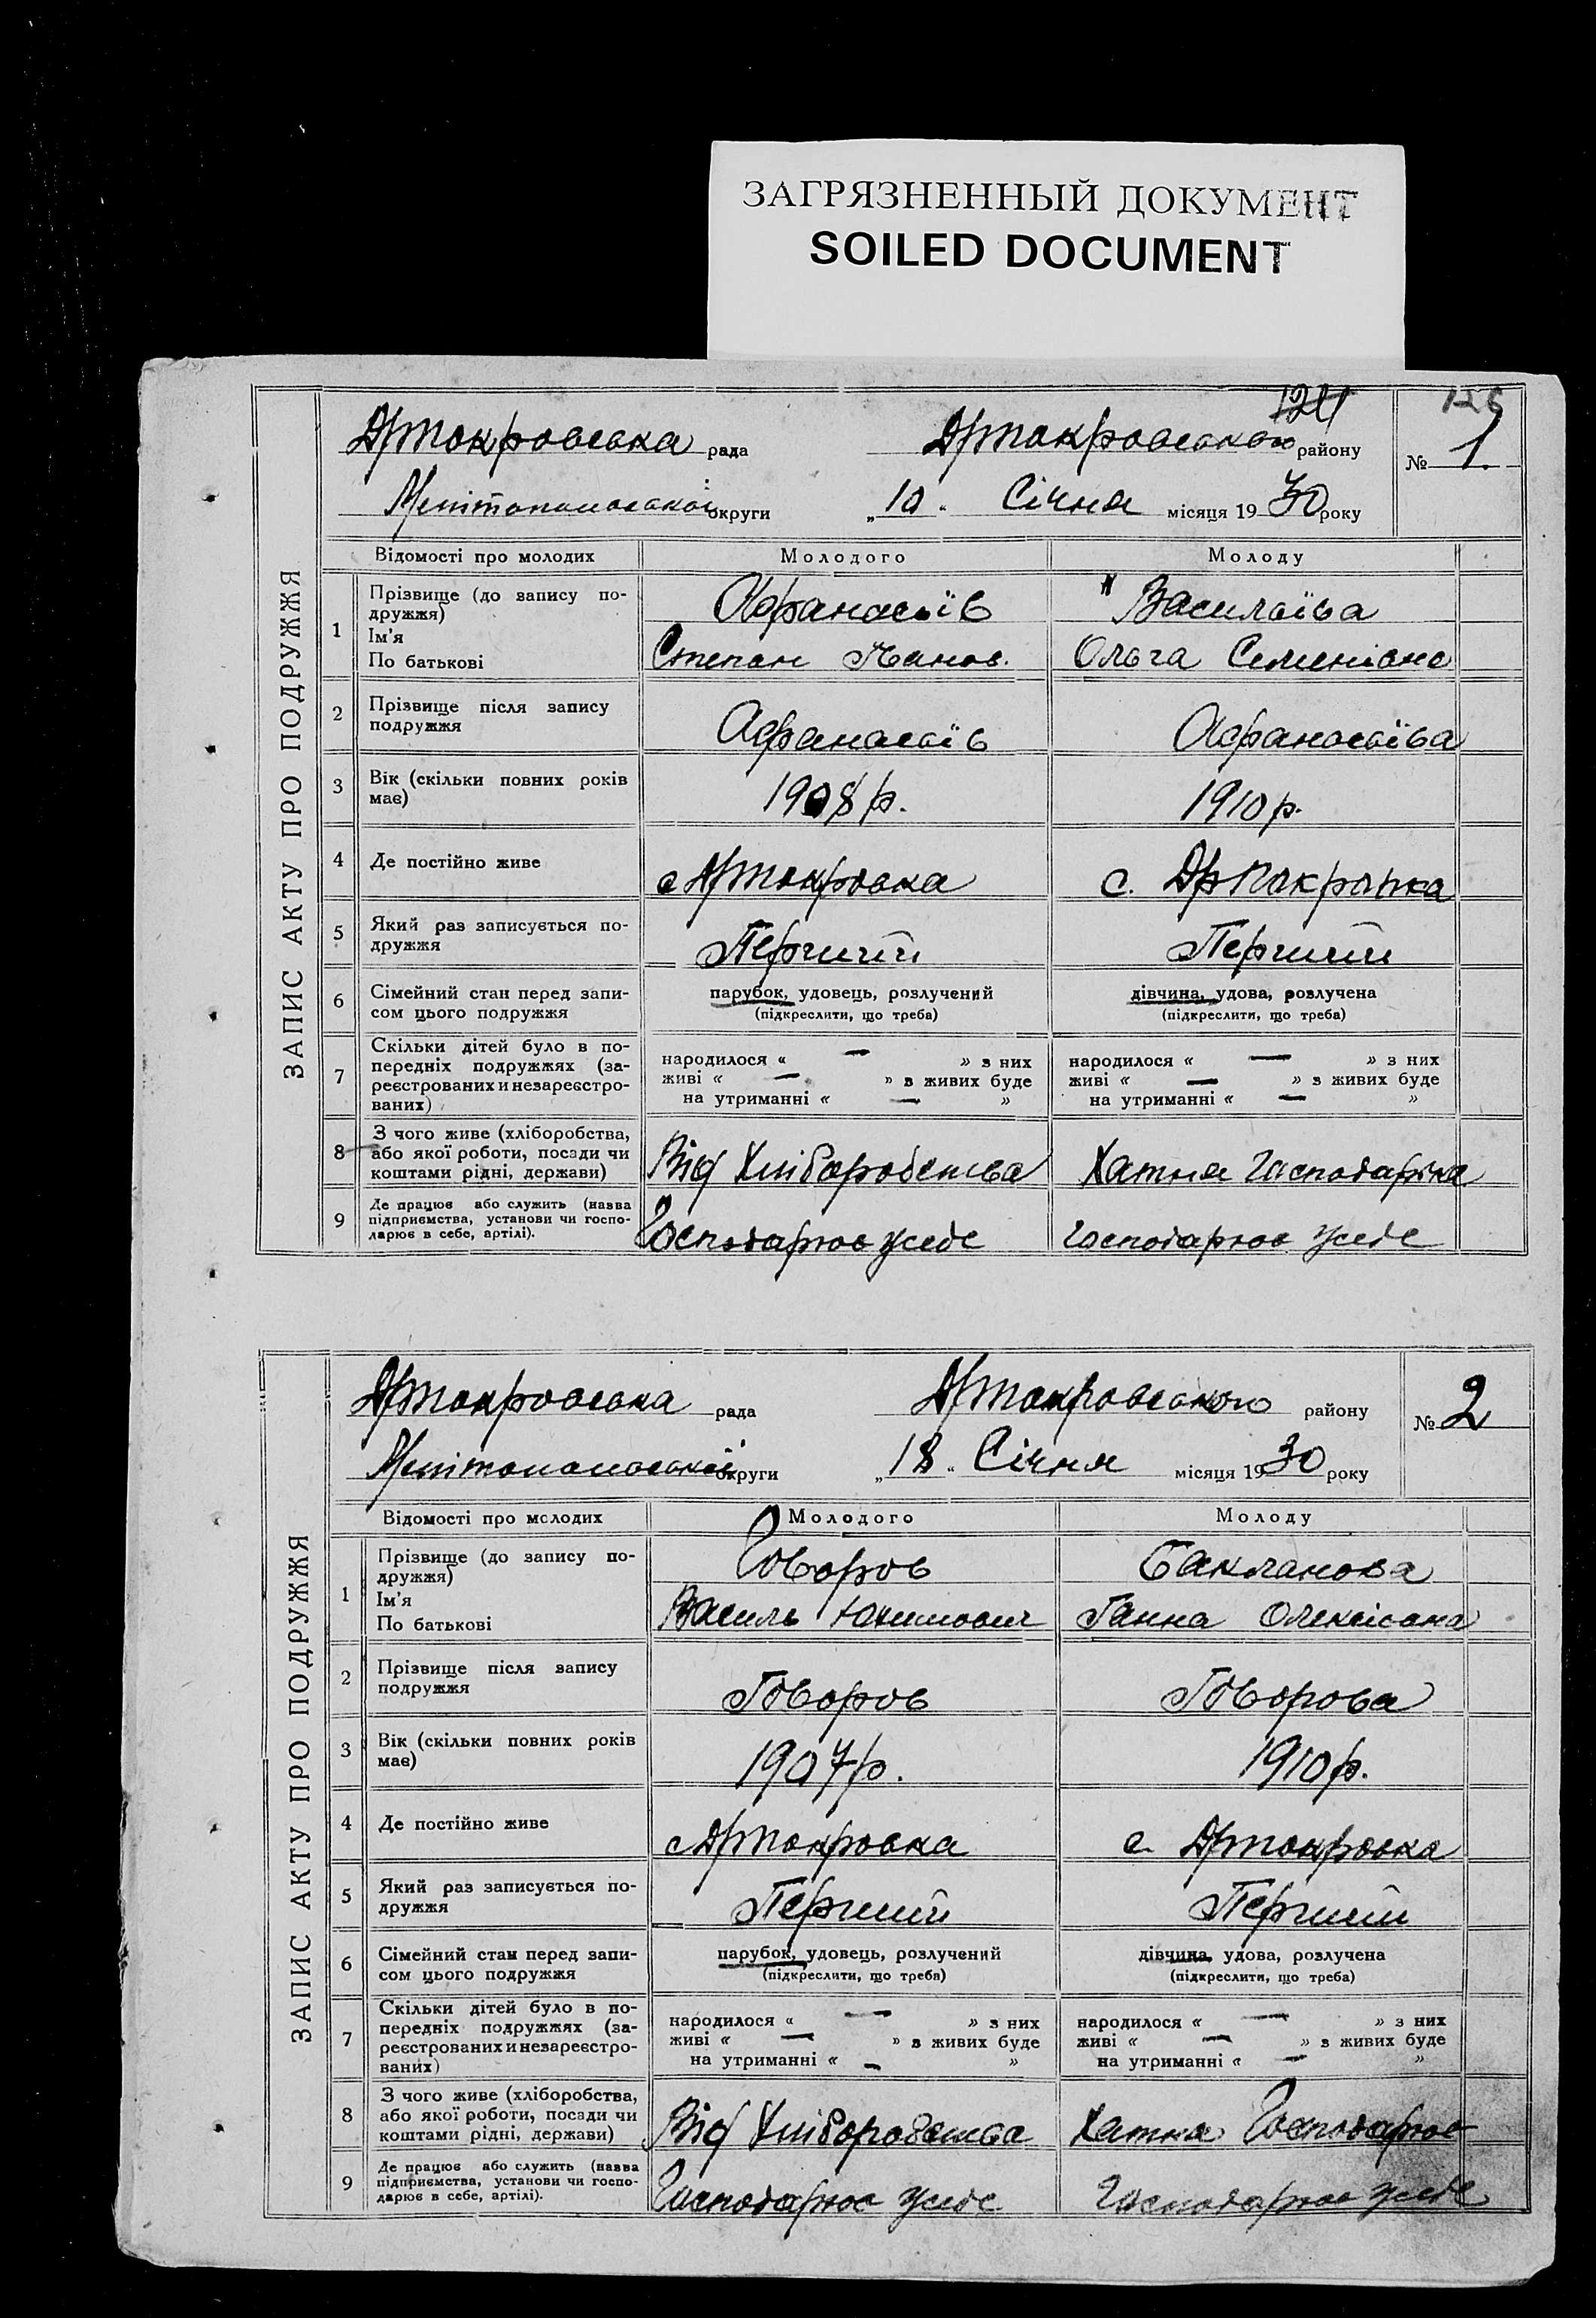 ЗАГРЯЗНЕННЫЙ ДОКУМЕНТ
SOILED DOCUMENT
124
126
ЗАПИС АКТУ ПРО ПОДРУЖЖЯ
Дрпокровська рада Дрпокровського району № 1
Мелітопольської округи „10“ Січня місяця 1930 року
Відомості про молодих Молодого Молоду
1 Прізвище (до запису по-
дружжя) Афанасьїв Васильїва
Ім'я
По батькові Степан Иванов. Ольга Семенівна
2 Прізвище після запису
подружжя Афанасьїв Афанасьїва
3 Вік (скільки повних років
має) 1908 р. 1910 р.
4 Де постійно живе с Дрпокровка с. Дрпокровка
5 Який раз записується по-
дружжя Перший Перший
6 Сімейний стан перед запи-
сом цього подружжя
парубок, удовець, розлучений дівчина, удова, розлучена
(підкреслити, що треба) (підкреслити, що треба)
7 Скільки дітей було в по-
передніх подружжях (за-
реєстрованих и незареєстро-
ваних)
народилося « — » з них народилося « — » з них
живі « — » в живих буде живі « — » в живих буде
на утриманні « — » на утриманні « — »
8 З чого живе (хліборобства,
або якої роботи, посади чи
коштами рідні, держави) Від Хліборобства Хатня Господарка
9 Де працює або служить (назва
підприємства, установи чи госпо-
дарює в себе, артілі). Господарює усебе Господарює усебе
ЗАПИС АКТУ ПРО ПОДРУЖЖЯ
Дрпокровська рада Дрпокровського району № 2
Мелітопольської округи „18“ Січня місяця 1930 року
Відомості про молодих Молодого Молоду
1 Прізвище (до запису по-
дружжя) Говоров Бакланова
Ім'я
По батькові Василь Юхимович Ганна Олексієвна
2 Прізвище після запису
подружжя Говоров Говорова
3 Вік (скільки повних років
має) 1907 р. 1910 р.
4 Де постійно живе с Дрпокровка с. Дрпокровка
5 Який раз записується по-
дружжя Перший Перший
6 Сімейний стан перед запи-
сом цього подружжя
парубок, удовець, розлучений дівчина, удова, розлучена
(підкреслити, що треба) (підкреслити, що треба)
7 Скільки дітей було в по-
передніх подружжях (за-
реєстрованих и незареєстро-
ваних)
народилося « — » з них народилося « — » з них
живі « — » в живих буде живі « — » в живих буде
на утриманні « — » на утриманні « — »
8 З чого живе (хліборобства,
або якої роботи, посади чи
коштами рідні, держави) Від Хліборобства Хатня Господарює
9 Де працює або служить (назва
підприємства, установи чи госпо-
дарює в себе, артілі). Господарює усебе Господарює усебе